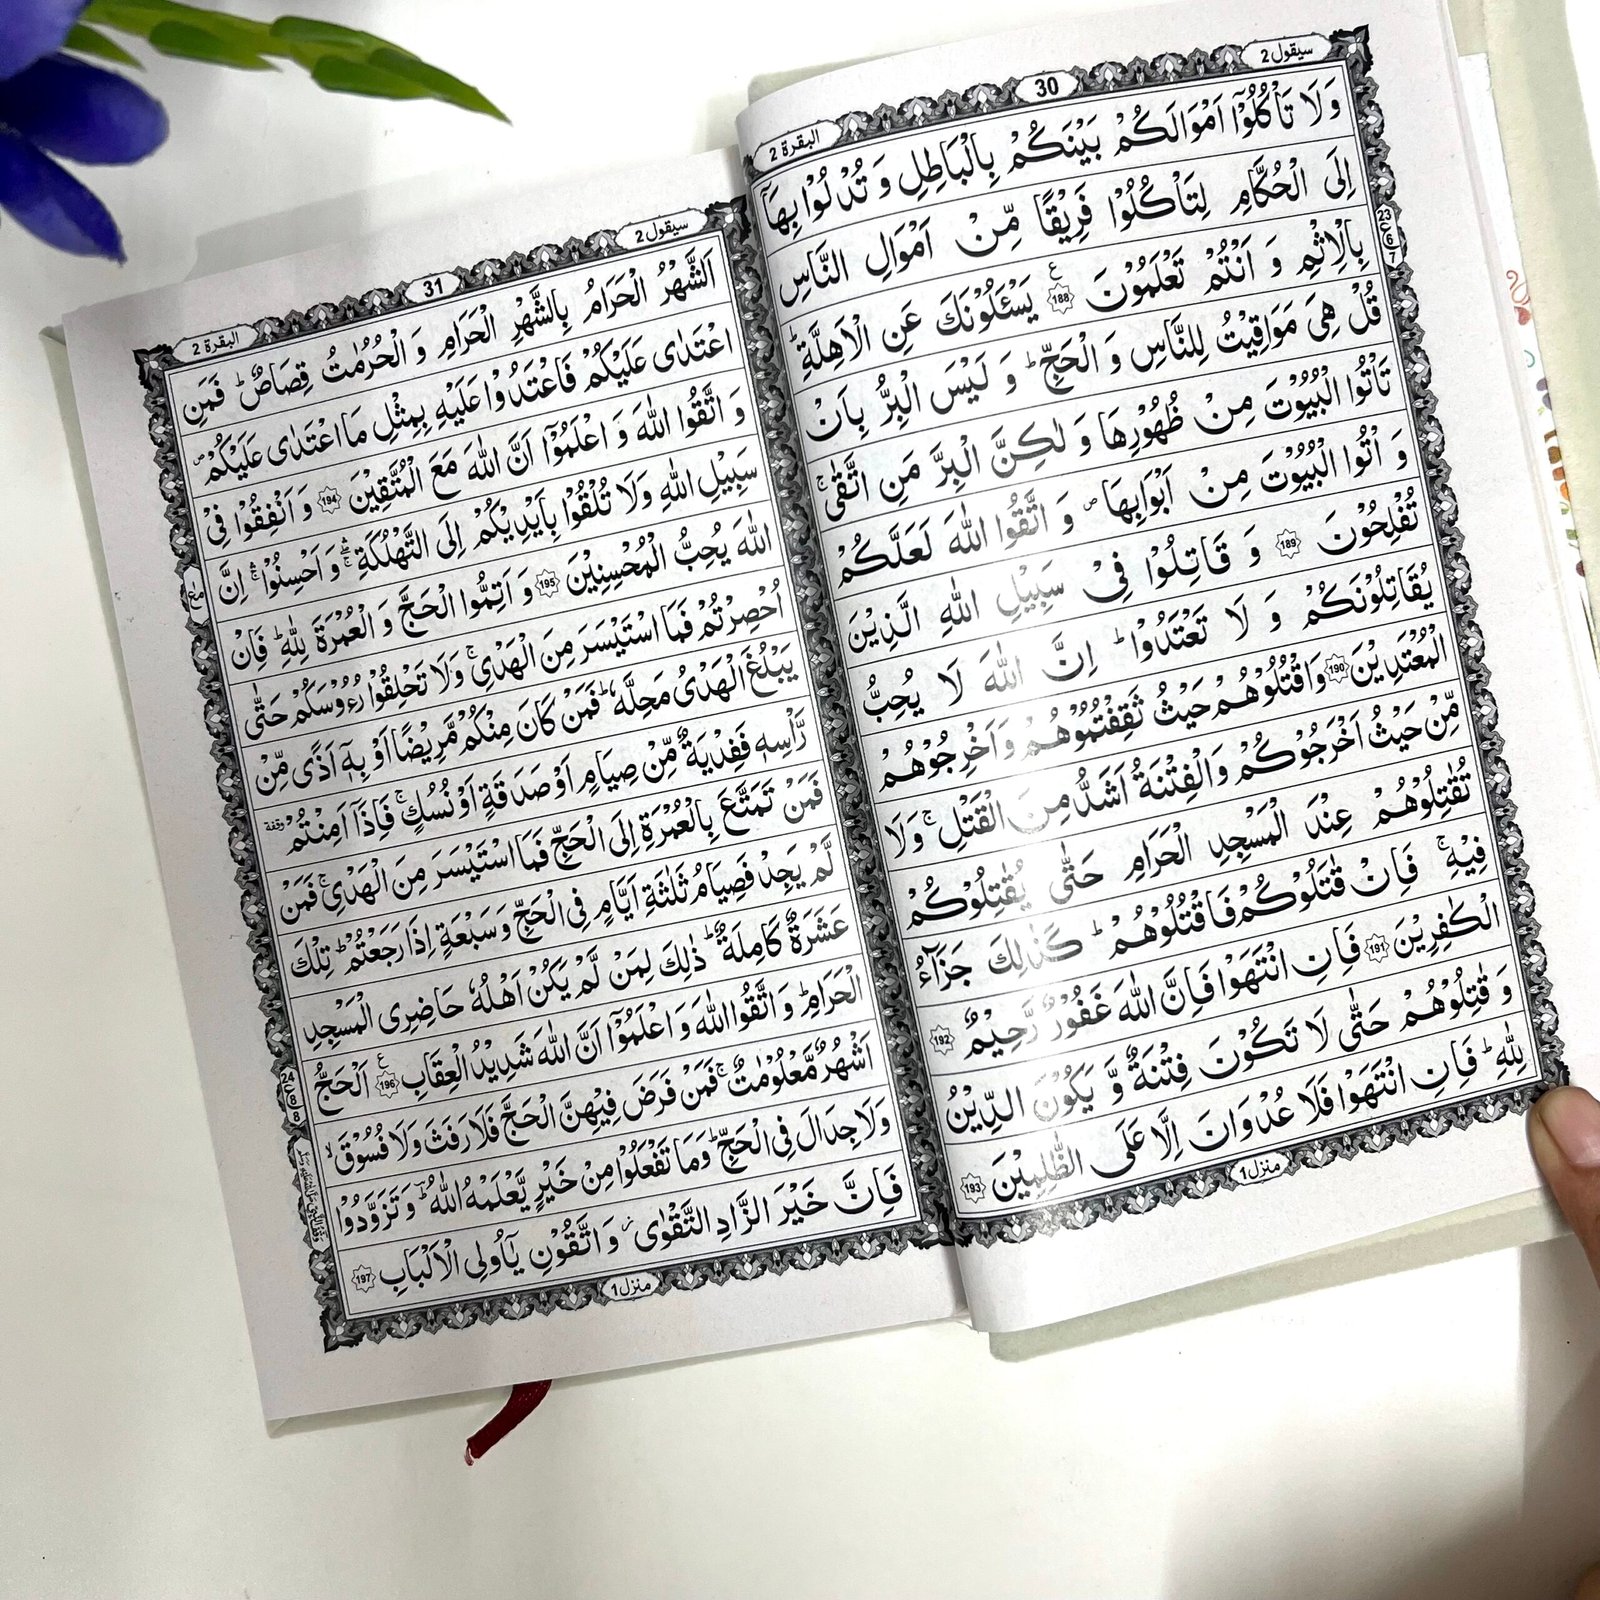 سيقول 2
30
البقرة 2
وَلَا تَاْكُلُوْٓا اَمْوَالَكُمْ بَيْنَكُمْ بِالْبَاطِلِ وَ تُدْلُوْا بِهَآ
اِلَى الْحُكَّامِ لِتَاْكُلُوْا فَرِيْقًا مِّنْ اَمْوَالِ النَّاسِ
بِالْاِثْمِ وَ اَنْتُمْ تَعْلَمُوْنَ 188 ع يَسْـَٔلُوْنَكَ عَنِ الْاَهِلَّةِ ؕ
قُلْ هِيَ مَوَاقِيْتُ لِلنَّاسِ وَ الْحَجِّ ؕ وَ لَيْسَ الْبِرُّ بِاَنْ
تَاْتُوا الْبُيُوْتَ مِنْ ظُهُوْرِهَا وَ لٰكِنَّ الْبِرَّ مَنِ اتَّقٰى ۚ
وَ اْتُوا الْبُيُوْتَ مِنْ اَبْوَابِهَا ۪ وَ اتَّقُوا اللّٰهَ لَعَلَّكُمْ
تُفْلِحُوْنَ 189 وَ قَاتِلُوْا فِيْ سَبِيْلِ اللّٰهِ الَّذِيْنَ
يُقَاتِلُوْنَكُمْ وَ لَا تَعْتَدُوْا ؕ اِنَّ اللّٰهَ لَا يُحِبُّ
الْمُعْتَدِيْنَ 190 وَاقْتُلُوْهُمْ حَيْثُ ثَقِفْتُمُوْهُمْ وَاَخْرِجُوْهُمْ
مِّنْ حَيْثُ اَخْرَجُوْكُمْ وَالْفِتْنَةُ اَشَدُّ مِنَ الْقَتْلِ ۚ وَلَا
تُقٰتِلُوْهُمْ عِنْدَ الْمَسْجِدِ الْحَرَامِ حَتّٰى يُقٰتِلُوْكُمْ
فِيْهِ ۚ فَاِنْ قٰتَلُوْكُمْ فَاقْتُلُوْهُمْ ؕ كَذٰلِكَ جَزَآءُ
الْكٰفِرِيْنَ 191 فَاِنِ انْتَهَوْا فَاِنَّ اللّٰهَ غَفُوْرٌ رَّحِيْمٌ 192
وَ قٰتِلُوْهُمْ حَتّٰى لَا تَكُوْنَ فِتْنَةٌ وَّ يَكُوْنَ الدِّيْنُ
لِلّٰهِ ؕ فَاِنِ انْتَهَوْا فَلَا عُدْوَانَ اِلَّا عَلَى الظّٰلِمِيْنَ 193
منزل 1
23
6
7
سيقول 2
31
البقرة 2
اَلشَّهْرُ الْحَرَامُ بِالشَّهْرِ الْحَرَامِ وَ الْحُرُمٰتُ قِصَاصٌ ؕ فَمَنِ
اعْتَدٰى عَلَيْكُمْ فَاعْتَدُوْا عَلَيْهِ بِمِثْلِ مَا اعْتَدٰى عَلَيْكُمْ ۪
وَ اتَّقُوا اللّٰهَ وَ اعْلَمُوْٓا اَنَّ اللّٰهَ مَعَ الْمُتَّقِيْنَ 194 وَ اَنْفِقُوْا فِيْ
سَبِيْلِ اللّٰهِ وَلَا تُلْقُوْا بِاَيْدِيْكُمْ اِلَى التَّهْلُكَةِ ۛۚ وَ اَحْسِنُوْا ۛۚ اِنَّ
اللّٰهَ يُحِبُّ الْمُحْسِنِيْنَ 195 وَ اَتِمُّوا الْحَجَّ وَ الْعُمْرَةَ لِلّٰهِ ؕ فَاِنْ
اُحْصِرْتُمْ فَمَا اسْتَيْسَرَ مِنَ الْهَدْيِ ۚ وَلَا تَحْلِقُوْا رُءُوْسَكُمْ حَتّٰى
يَبْلُغَ الْهَدْىُ مَحِلَّهٗ ؕ فَمَنْ كَانَ مِنْكُمْ مَّرِيْضًا اَوْ بِهٖٓ اَذًى مِّنْ
رَّاْسِهٖ فَفِدْيَةٌ مِّنْ صِيَامٍ اَوْ صَدَقَةٍ اَوْ نُسُكٍ ۚ فَاِذَآ اَمِنْتُمْ وقفة
فَمَنْ تَمَتَّعَ بِالْعُمْرَةِ اِلَى الْحَجِّ فَمَا اسْتَيْسَرَ مِنَ الْهَدْيِ ۚ فَمَنْ
لَّمْ يَجِدْ فَصِيَامُ ثَلٰثَةِ اَيَّامٍ فِى الْحَجِّ وَ سَبْعَةٍ اِذَا رَجَعْتُمْ ؕ تِلْكَ
عَشَرَةٌ كَامِلَةٌ ؕ ذٰلِكَ لِمَنْ لَّمْ يَكُنْ اَهْلُهٗ حَاضِرِى الْمَسْجِدِ
الْحَرَامِ ؕ وَ اتَّقُوا اللّٰهَ وَ اعْلَمُوْٓا اَنَّ اللّٰهَ شَدِيْدُ الْعِقَابِ 196 ع اَلْحَجُّ
اَشْهُرٌ مَّعْلُوْمٰتٌ ۚ فَمَنْ فَرَضَ فِيْهِنَّ الْحَجَّ فَلَا رَفَثَ وَلَا فُسُوْقَ ۙ
وَلَا جِدَالَ فِى الْحَجِّ ؕ وَمَا تَفْعَلُوْا مِنْ خَيْرٍ يَّعْلَمْهُ اللّٰهُ ؕ وَ تَزَوَّدُوْا
فَاِنَّ خَيْرَ الزَّادِ التَّقْوٰى ۫ وَ اتَّقُوْنِ يٰٓاُولِى الْاَلْبَابِ 197
منزل 1
24
8
8